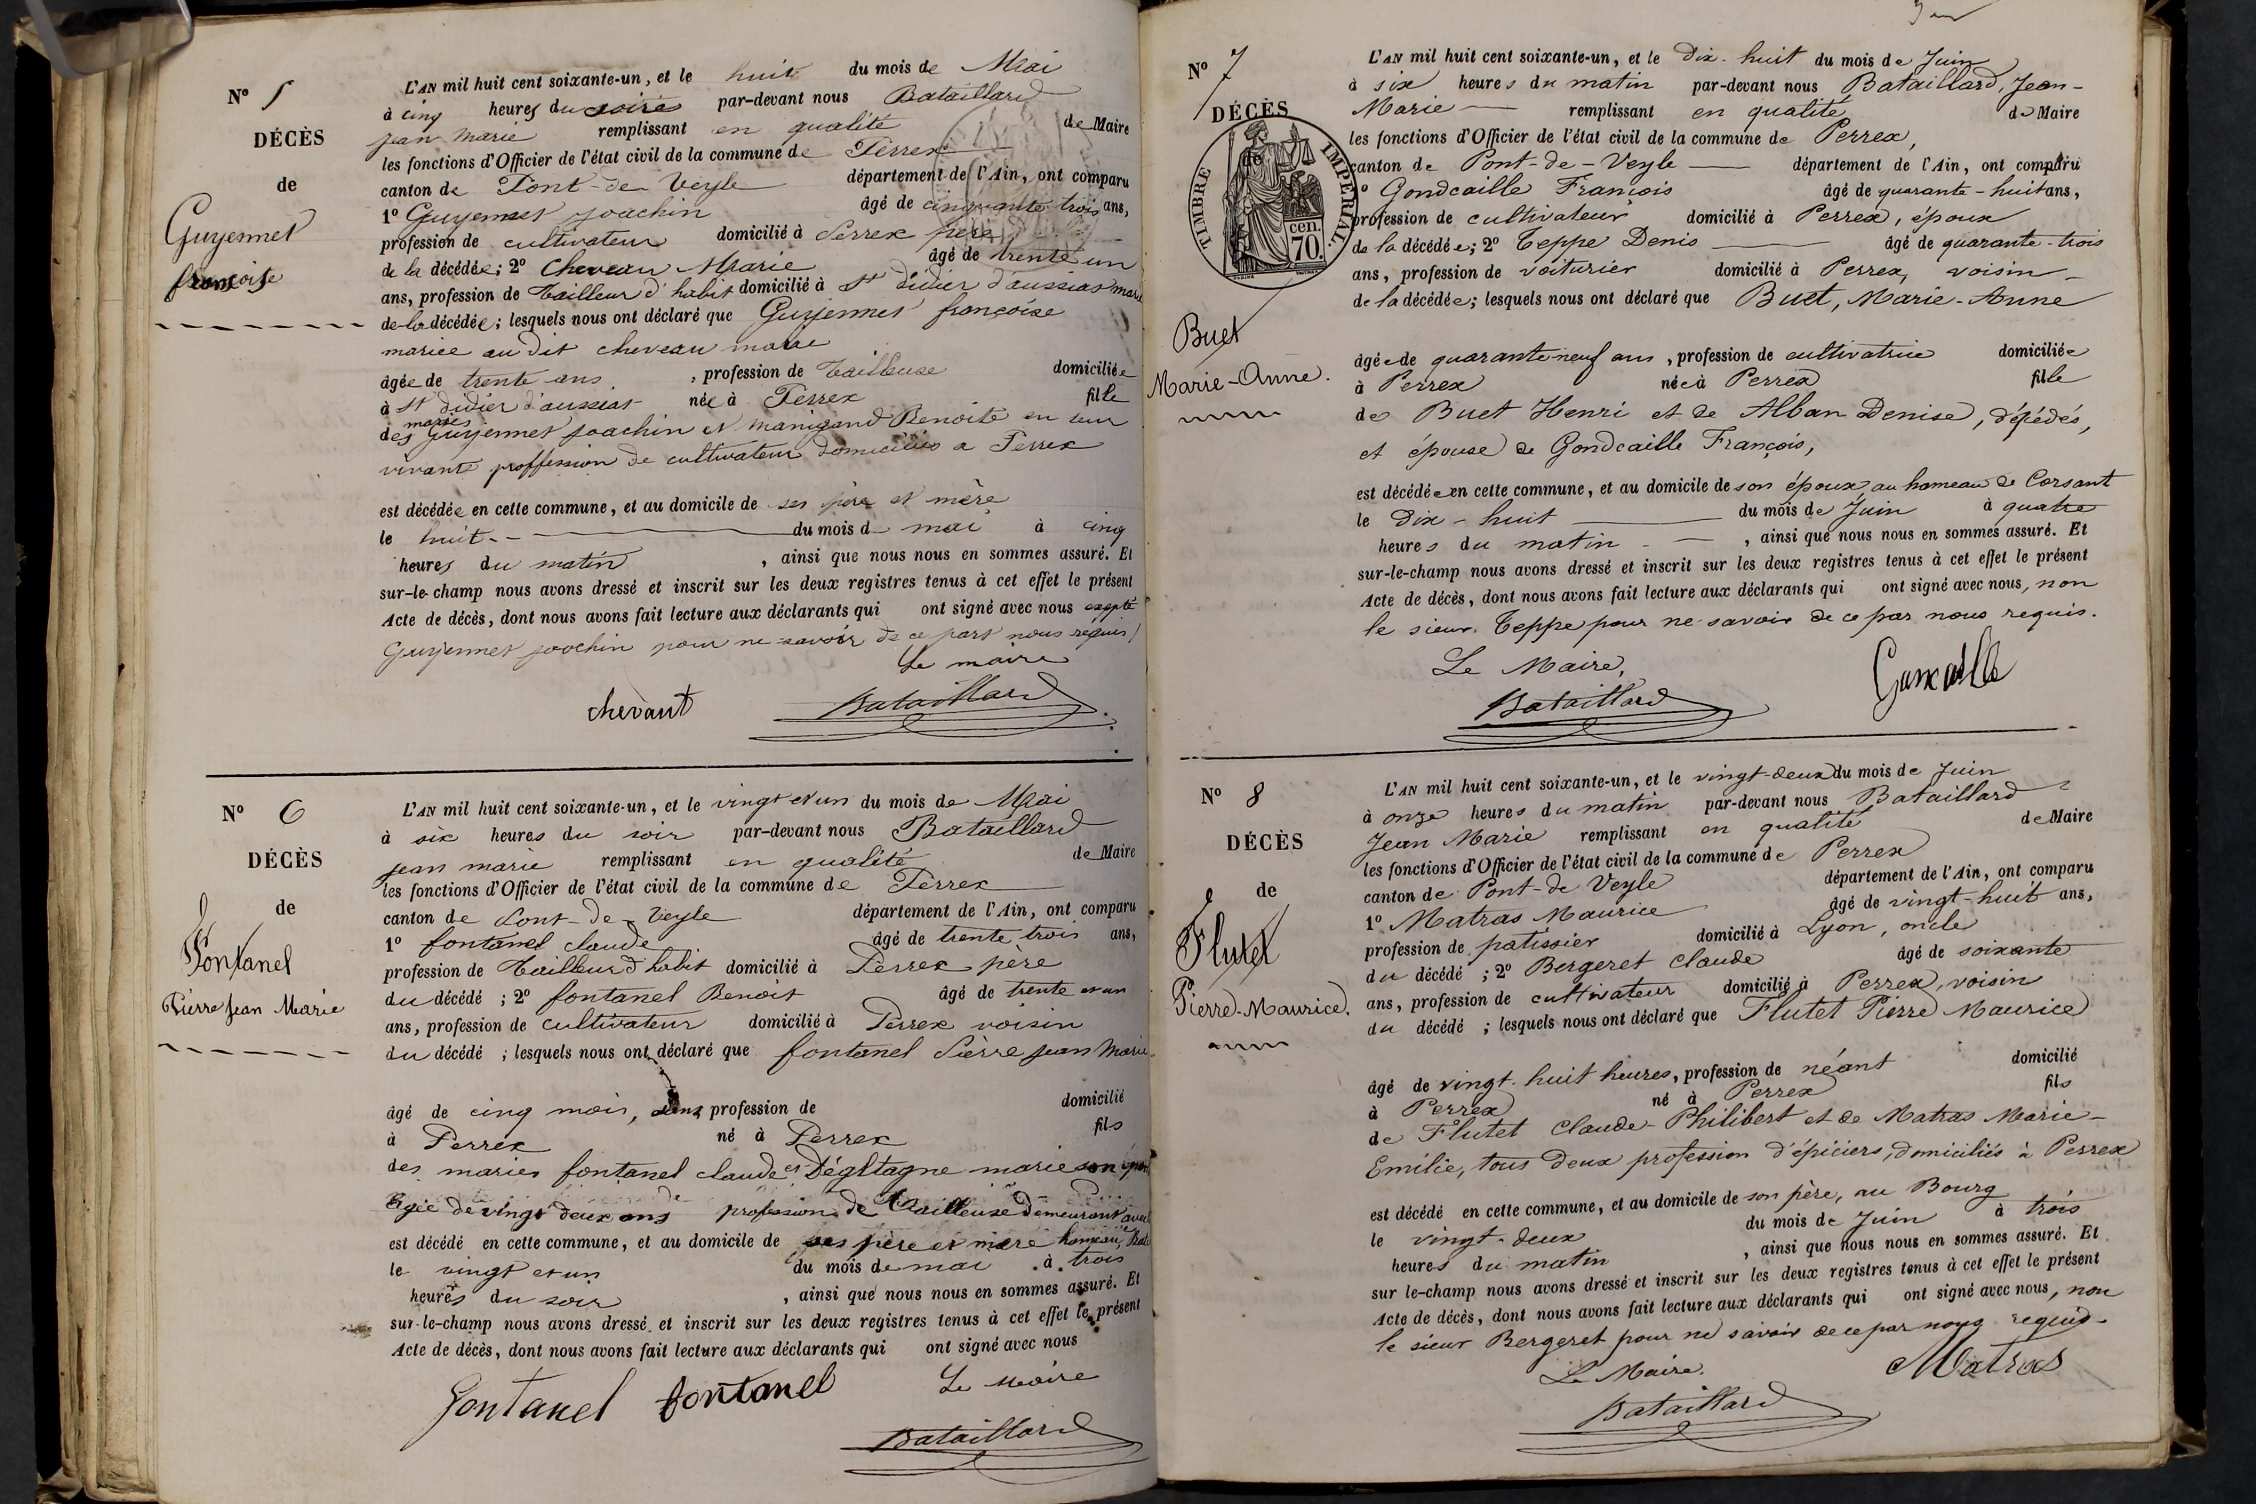 N° 5
DÉCÈS
de
Guyennet
françoise
L'AN mil huit cent soixante-un, et le huit du mois de Mai
à cinq heures du soire par-devant nous Bataillard
jean marie remplissant en qualité de Maire
les fonctions d'Officier de l'état civil de la commune de Perrex
canton de Pont-de-Veyle département de l'Ain, ont comparu
1° Guyennet joachin âgé de cinquante trois ans,
profession de cultivateur domicilié à Perrex père
de la décédée; 2° Cheveau Marie âgé de trente un
ans, profession de tailleur d'habit domicilié à St didier d'aussiat mari
de la décédée; lesquels nous ont déclaré que Guyennet françoise
mariée au dit cheveau marie
âgée de trente ans, profession de tailleuse domiciliée
à St didier d'aussiat née à Perrex fille
des mariés Guyennet joachin et manigand Benoite en leur
vivante proffession de cultivateur domiciliés a Perrex
est décédée en cette commune, et au domicile de ses père et mère
le huit du mois de mai à cinq
heures du matin, ainsi que nous nous en sommes assuré. Et
sur-le-champ nous avons dressé et inscrit sur les deux registres tenus à cet effet le présent
Acte de décès, dont nous avons fait lecture aux déclarants qui ont signé avec nous exepté
Guyennet joachin pour ne savoir de ce part nous requis
Le maire
chevant Bataillard
N° 6
DÉCÈS
de
Fontanel
Pierre Jean Marie
L'AN mil huit cent soixante-un, et le vingt et un du mois de Mai
à six heures du soir par-devant nous Bataillard
jean marie remplissant en qualité de Maire
les fonctions d'Officier de l'état civil de la commune de Perrex
canton de Pont-de-Veyle département de l'Ain, ont comparu
1° fontanel claude âgé de trente trois ans,
profession de tailleur d'habit domicilié à Perrex père
du décédé; 2° fontanel Benoit âgé de trente et un
ans, profession de cultivateur domicilié à Perrex voisin
du décédé; lesquels nous ont déclaré que fontanel Pierre jean Marie
âgé de cinq mois, sans profession de domicilié
à Perrex né à Perrex fils
des mariés fontanel claude et Dégltagne marie son
âgée de vingt deux ans profession de tailleuse demeurant avec
est décédé en cette commune, et au domicile de ses père et mère hameau
le vingt et un du mois de mai à trois
heures du soir, ainsi que nous nous en sommes assuré. Et
sur-le-champ nous avons dressé et inscrit sur les deux registres tenus à cet effet le présent
Acte de décès, dont nous avons fait lecture aux déclarants qui ont signé avec nous
Fontanel fontanel Le maire
Bataillard
N° 7
DÉCÈS
de
TIMBRE IMPERIAL.
cen.
70.
Buet
Marie-Anne.
L'AN mil huit cent soixante-un, et le dix-huit du mois de Juin
à six heures du matin par-devant nous Bataillard, Jean-
Marie remplissant en qualité de Maire
les fonctions d'Officier de l'état civil de la commune de Perrex,
canton de Pont-de-Veyle département de l'Ain, ont comparu
1° Gondcaille François âgé de quarante-huit ans,
profession de cultivateur domicilié à Perrex, époux
de la décédée; 2° Teppe Denis âgé de quarante-trois
ans, profession de voiturier domicilié à Perrex, voisin
de la décédée; lesquels nous ont déclaré que Buet, Marie-Anne
âgée de quarante-neuf ans, profession de cultivatrice domiciliée
à Perrex née à Perrex fille
de Buet Henri et de Alban Denise, dépédés,
et épouse de Gondcaille François,
est décédée en cette commune, et au domicile de son époux au hameau de Corsant
le dix-huit du mois de Juin à quatre
heures du matin, ainsi que nous nous en sommes assuré. Et
sur-le-champ nous avons dressé et inscrit sur les deux registres tenus à cet effet le présent
Acte de décès, dont nous avons fait lecture aux déclarants qui ont signé avec nous, non
le sieur Teppe pour ne savoir de ce par nous requis.
Le Maire,
Bataillard
N° 8
DÉCÈS
de
Flutet
Pierre-Maurice.
L'AN mil huit cent soixante-un, et le vingt-deux du mois de Juin
à onze heures du matin par-devant nous Bataillard
Jean Marie remplissant en qualité de Maire
les fonctions d'Officier de l'état civil de la commune de Perrex
canton de Pont-de-Veyle département de l'Ain, ont comparu
1° Matras Maurice âgé de vingt-huit ans,
profession de patissier domicilié à Lyon, oncle
du décédé; 2° Bergeret Claude âgé de soixante
ans, profession de cultivateur domicilié à Perrex, voisin
du décédé; lesquels nous ont déclaré que Flutet Pierre Maurice
âgé de vingt-huit heures, profession de néant domicilié
à Perrex né à Perrex fils
de Flutet Claude-Philibert et de Matras Marie-
Emilie, tous deux profession d'épiciers, domiciliés à Perrex
est décédé en cette commune, et au domicile de son père, au Bourg
le vingt-deux du mois de Juin à trois
heures du matin, ainsi que nous nous en sommes assuré. Et
sur le-champ nous avons dressé et inscrit sur les deux registres tenus à cet effet le présent
Acte de décès, dont nous avons fait lecture aux déclarants qui ont signé avec nous, non
le sieur Bergeret pour ne savoir de ce par nous requis.
Le Maire. Matras
Bataillard